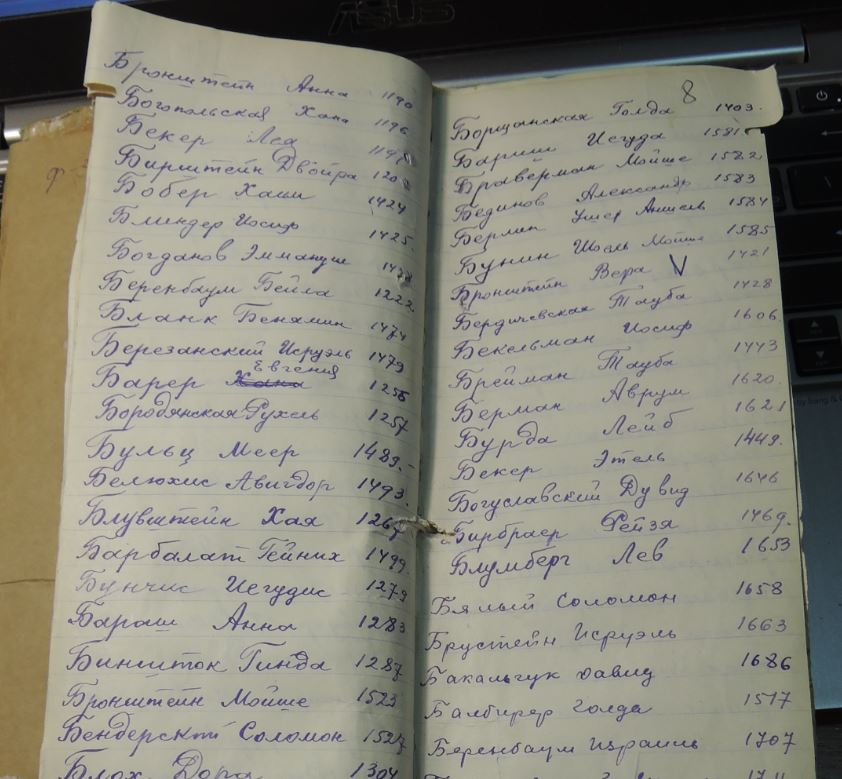 ASUS
Бронштейн Анна 1190
Богопольская Хана 1196
Бекер Леа
Бирштейн Двойра
Бобер Хаим 1424
Блиндер Иосиф 1425.
Богданов Эммануил
Беренбаум Бейла 1222
Бланк Бенямин 1474
Березанский Исруэль 1479
Евгения
Барер Хана 1256
Бородянская Рухель 1257
Бульц Меер 1489.-
Белюхис Авигдор 1493.
Блувштейн Хая 1267
Барбалат Гейних 1499
Бунчис Иегудис 1279
Бараш Анна 1283
Биншток Гинда 1287
Бронштейн Мойше 1523
Бендерский Соломон 1527
Блох Дора 1304
8
Борщанская Голда 1403.
Бариш Иегуда 1581
Браверман Мойше 1582
Бединов Александр 1583
Берлин Ушер Аншель 1584
Бунин Шоель Мойше 1585
Бронштейн Вера V 1421
Бердичевская Тауба 1428
Бекельман Иосиф 1606
Брейман Тауба 1443
Берман Аврум 1620.
Бурда Лейб 1621
Бекер Этель 1449.
Богуславский Дувид 1646
Бирбраер Рейзя 1469.
Блумберг Лев 1653
Бялый Соломон 1658
Брустейн Исруэль 1663
Бакальчук Давид 1686
Балбирер Голда 1517
Беренбаум Израиль 1707